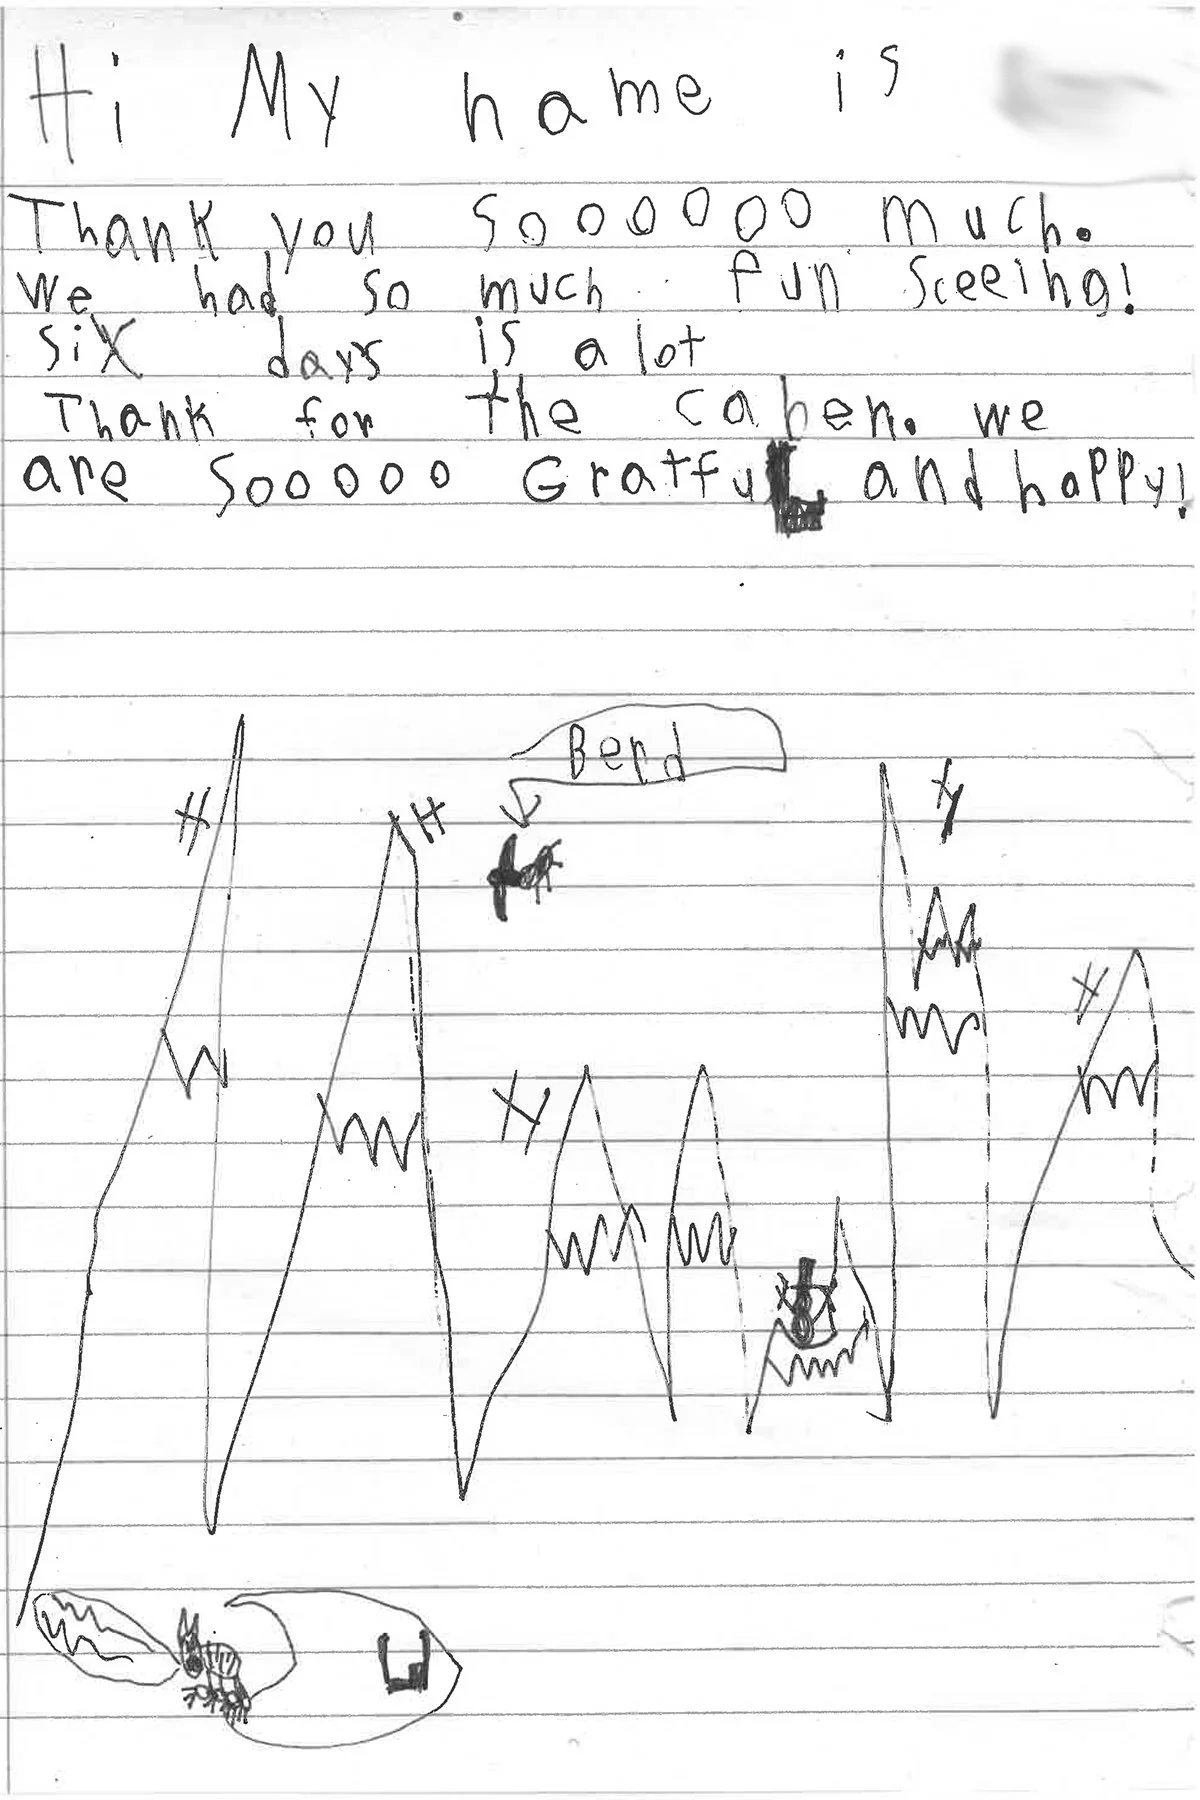 Hi My name is
Thank you soooooo much.
we had so much fun sceeing!
six days is a lot
Thank for the caben. we
are sooooo Gratful and happy!
Berd